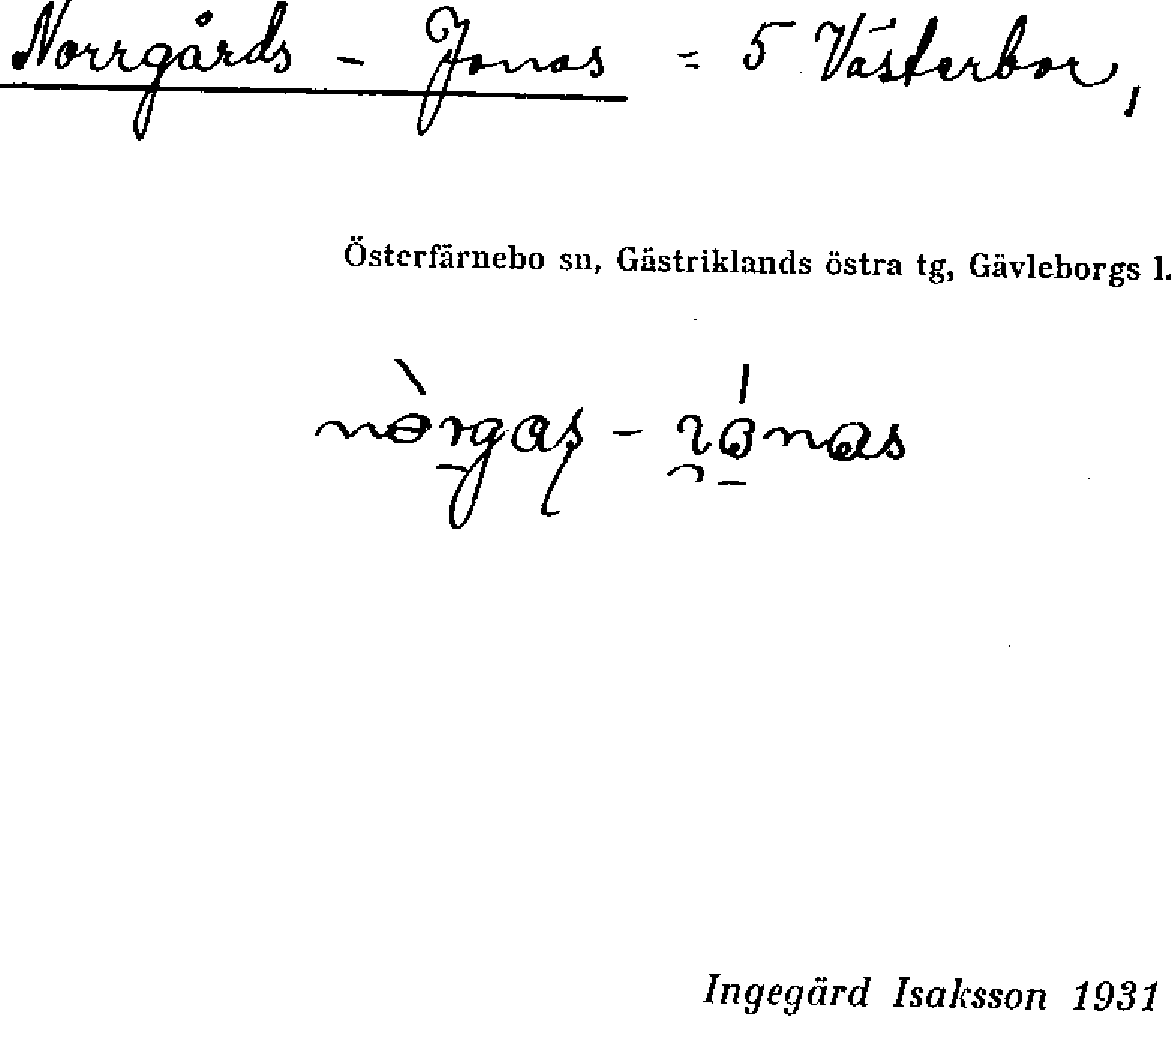 Norrgårds - Jonas = 5 Västerbor,
Österfärnebo sn, Gästriklands östra tg, Gävleborgs l.
Ingegärd Isaksson 1931